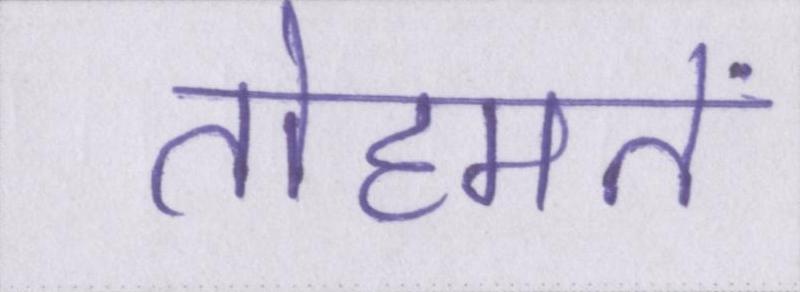 तोहमतें